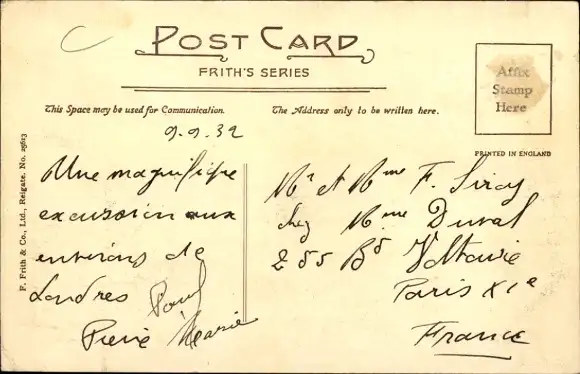 POST CARD
FRITH'S SERIES
This Space may be used for Communication.
The Address only to be written here.
Affix
Stamp
Here
PRINTED IN ENGLAND
F. Frith & Co., Ltd., Reigate. No. 29613
9.9.32
Une magnifique
excursion aux
environs de
Londres Paul
Pierre Marie
Mr et Mme F. Siray
chez Mme Duval
255 Bd Voltaire
Paris XIe
France